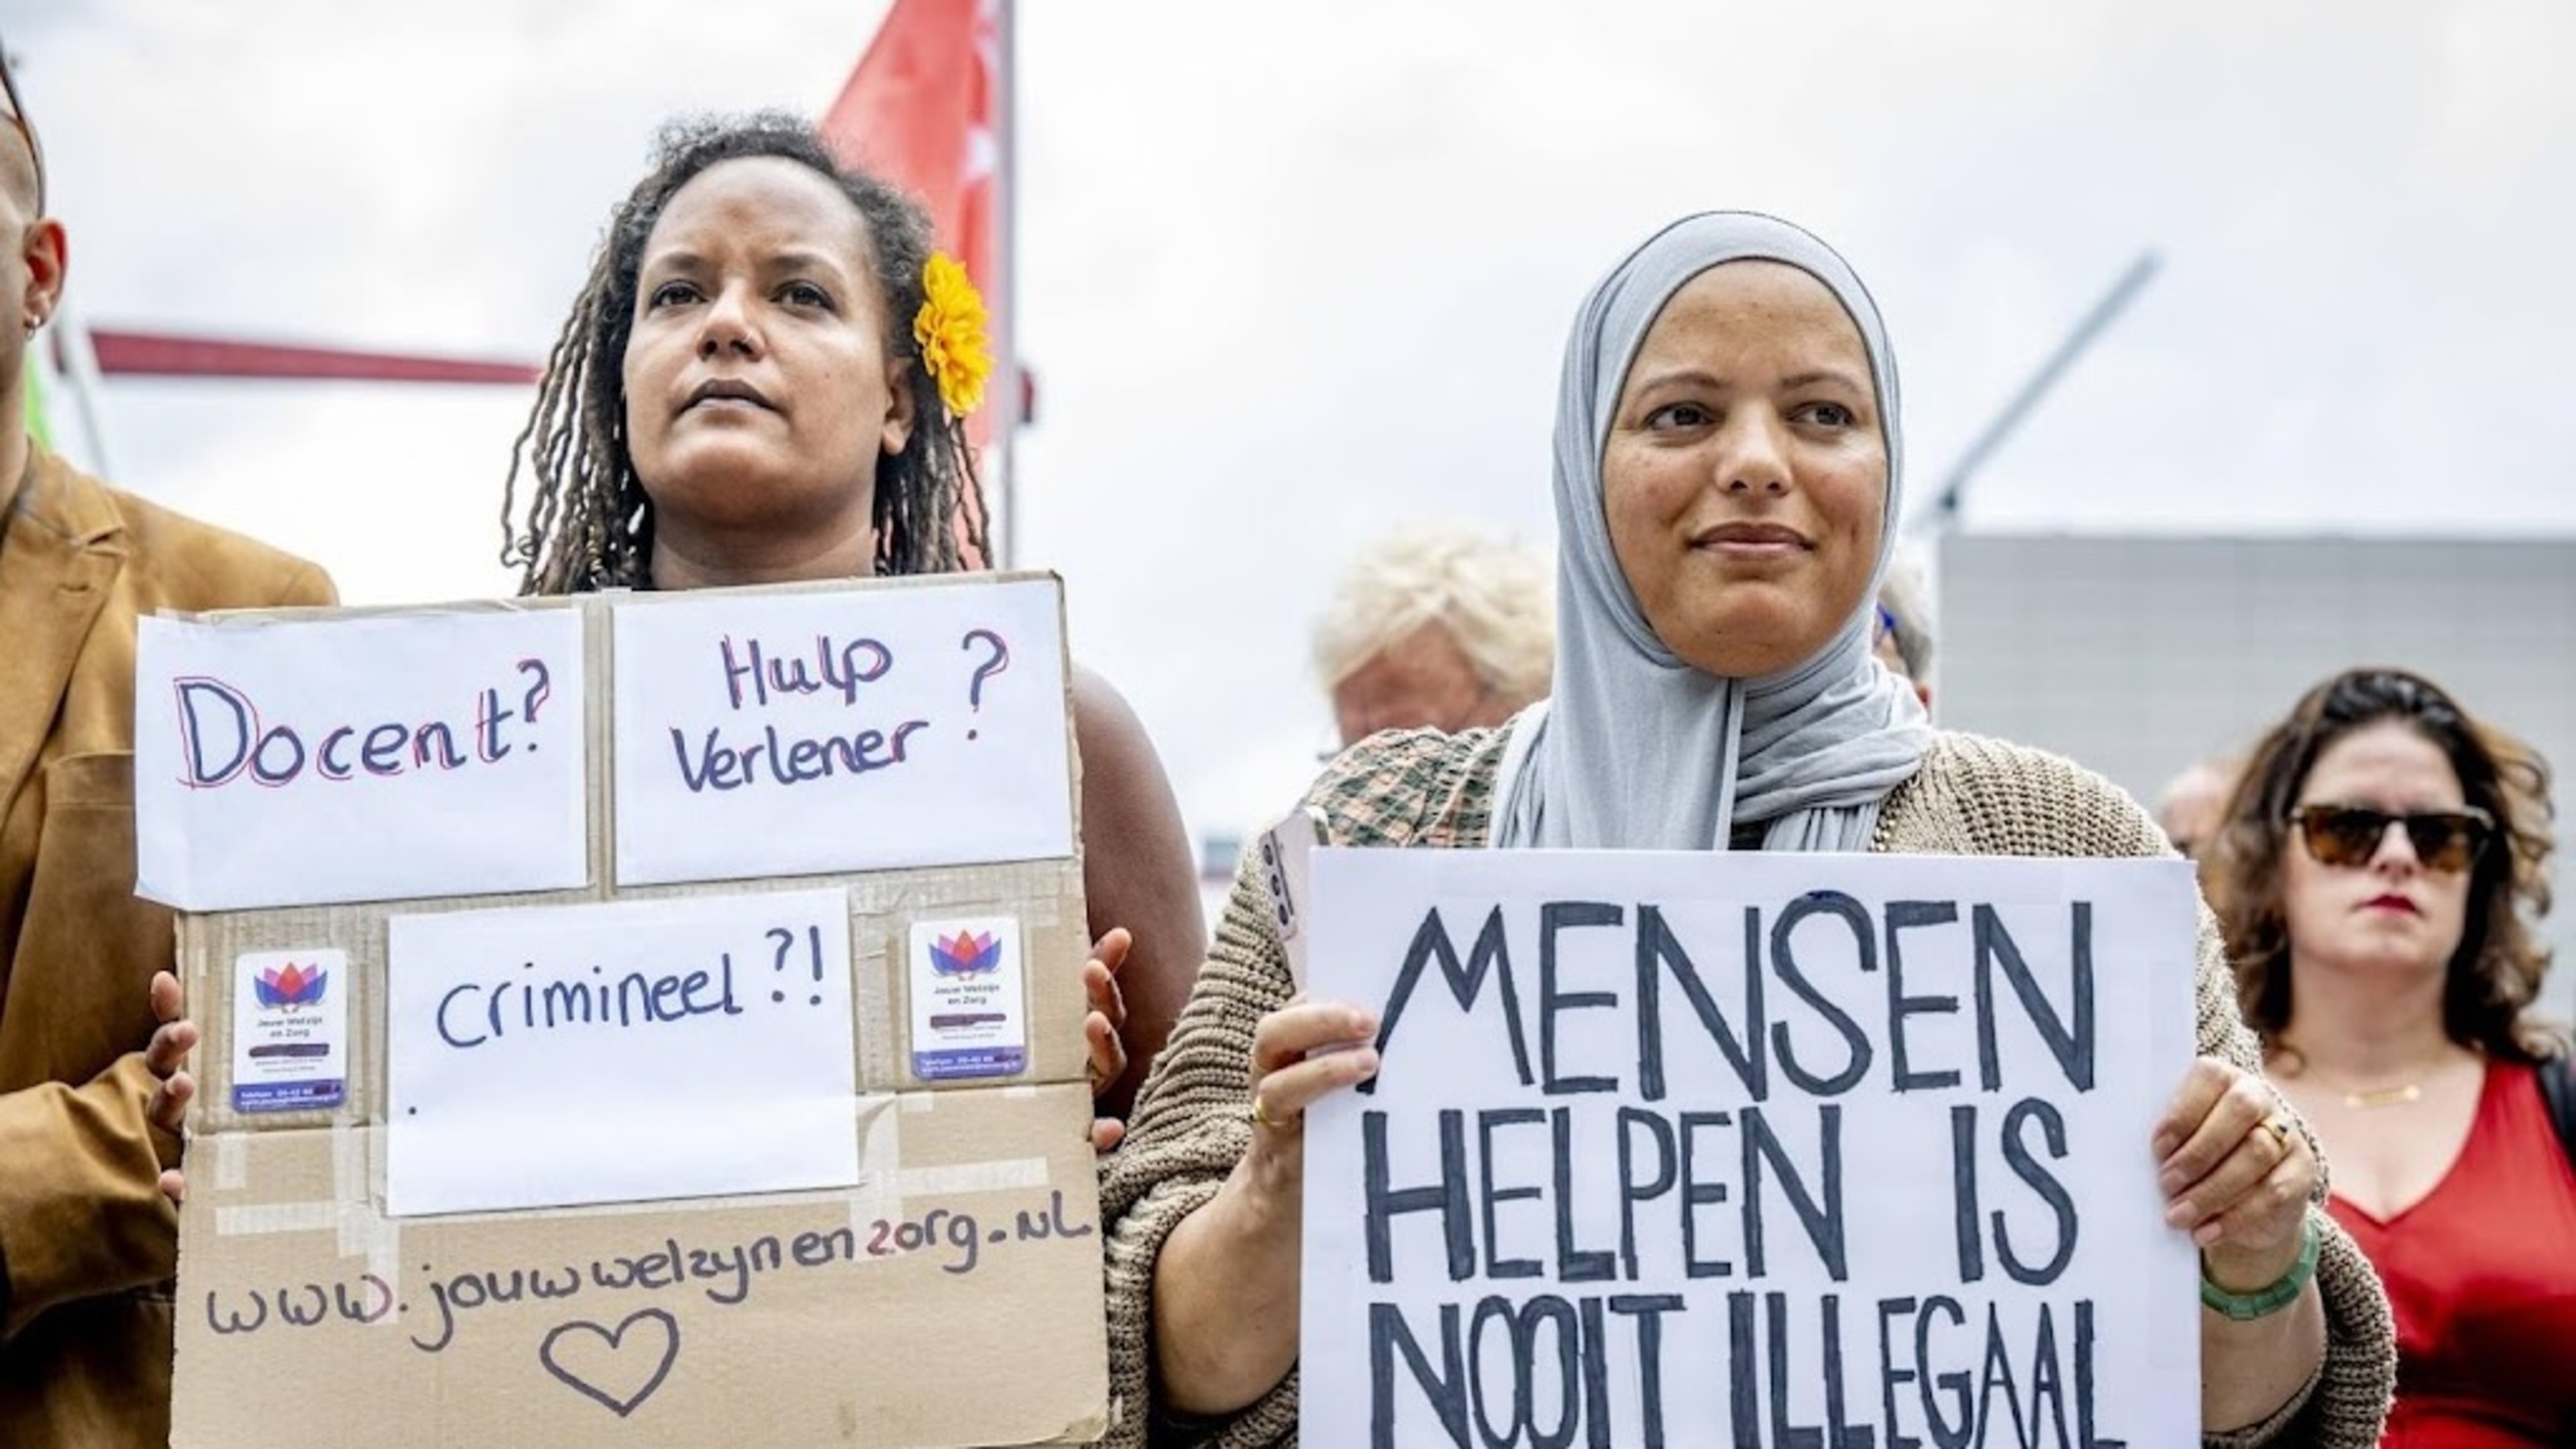 Docent?
Hulp ?
Verlener
crimineel?!
Jouw Welzijn
en Zorg
Jouw Welzijn
en Zorg
www.jouwwelzynenzorg.NL
MENSEN
HELPEN IS
NOOIT ILLEGAAL